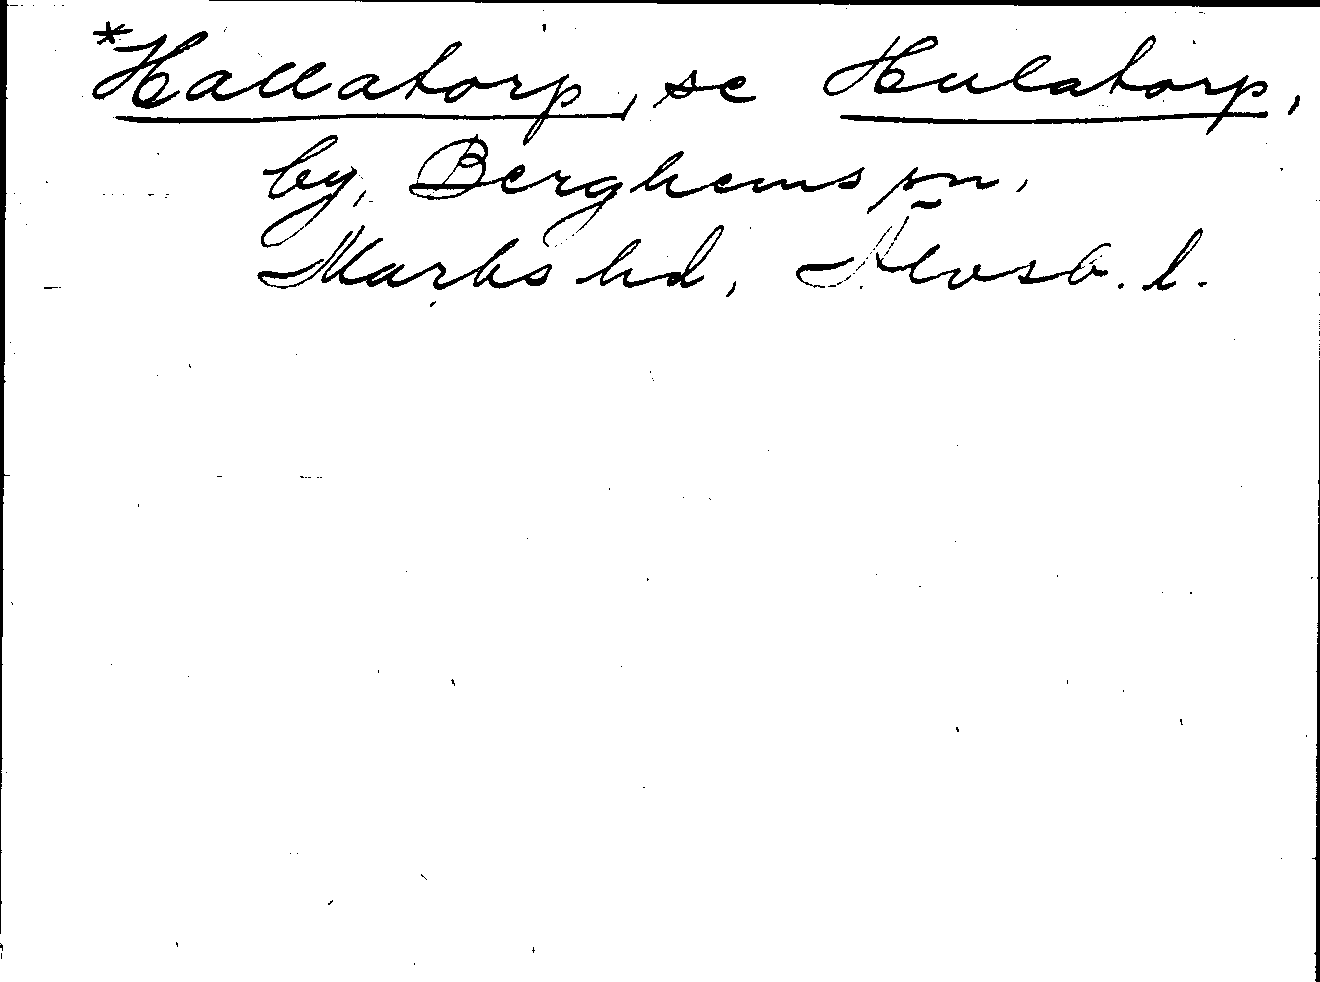 *Hallatorp, se Hulatorp,
by, Berghems sn,
Marks hd, Älvsb. l.